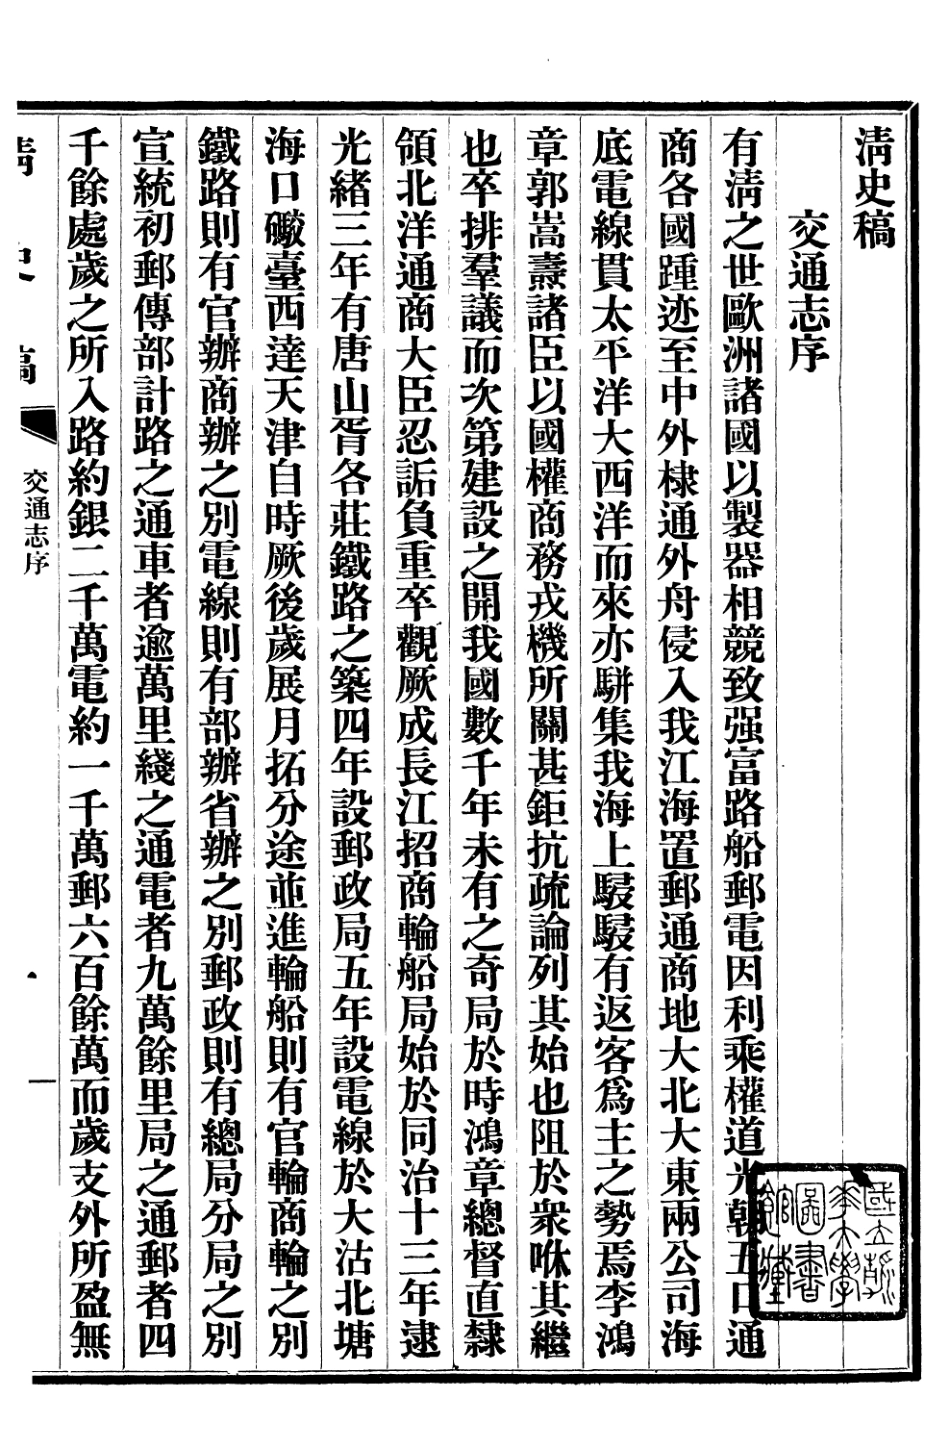 清史稿
交通志序
有清之世歐洲諸國以製器相競致强富路船郵電因利乘權道光朝五口通
商各國踵迹至中外棣通外舟侵入我江海置郵通商地大北大東兩公司海
底電線貫太平洋大西洋而來亦駢集我海上駸駸有返客爲主之勢焉李鴻
章郭嵩燾諸臣以國權商務戎機所關甚鉅抗疏論列其始也阻於衆咻其繼
也卒排羣議而次第建設之開我國數千年未有之奇局於時鴻章總督直隸
領北洋通商大臣忍詬負重卒觀厥成長江招商輪船局始於同治十三年逮
光緖三年有唐山胥各莊鐵路之築四年設郵政局五年設電線於大沽北塘
海口礮臺西達天津自時厥後歲展月拓分途並進輪船則有官輪商輪之別
鐵路則有官辦商辦之別電線則有部辦省辦之別郵政則有總局分局之別
宣統初郵傳部計路之通車者逾萬里綫之通電者九萬餘里局之通郵者四
千餘處歲之所入路約銀二千萬電約一千萬郵六百餘萬而歲支外所盈無
清史稿
交通志序
一